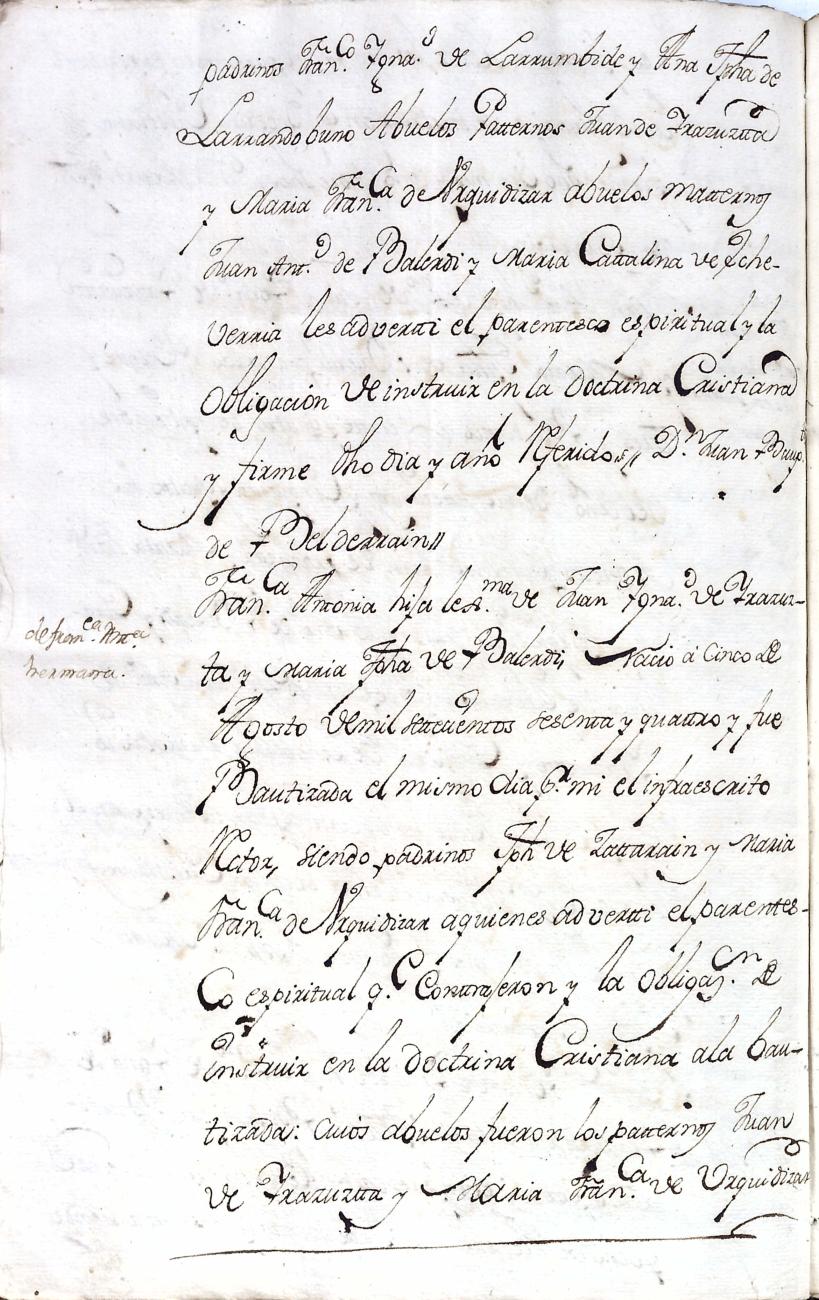 padrinos Fran.co Ygna.o de Larrumbide y Ana Jpha de
Larrandoburo Abuelos Patternos Juan de Yrazuztta
y Maria Fran.ca de Urquidizar abuelos matternos
Juan Ant.o de Balerdi y Maria Cattalina de Eche-
verria les advertti el parentesco espiritual y la
Obligación de instruir en la Doctrina Cristiana
y firme dho dia y año Referidos,, D.n Juan Baup.ta
de Belderrain,,
Fran.ca Antonia hija lex.ma de Juan Ygna.o de Yrazuz-
ta y Maria Jpha de Balerdi, Nacio a Cinco de
de fran.ca Ant.a
hermana.
Agosto de mil settecientos sesenta y quattro y fue
Bautizada el mismo dia p.r mi el infraescrito
Rector, siendo padrinos Jph de Lattarain y Maria
Fran.ca de Urquidizar aquienes advertti el parentes-
Co espiritual q.e Conttrajeron y la Obligaz.n de
instruir en la Doctrina Cristiana ala bau-
tizada: cuios abuelos fueron los patternos Juan
de Yrazuztta y Maria Fran.ca de Urquidizar